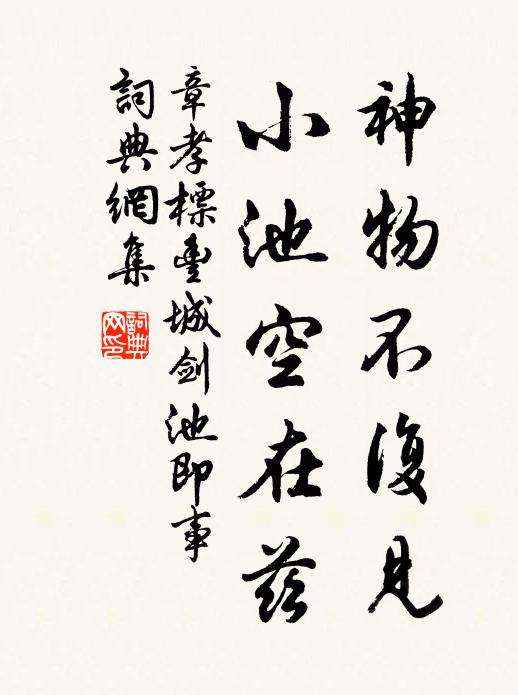 神物不復見
小池空在茲
章孝標豐城劍池即事
詞典網集
詞典網印